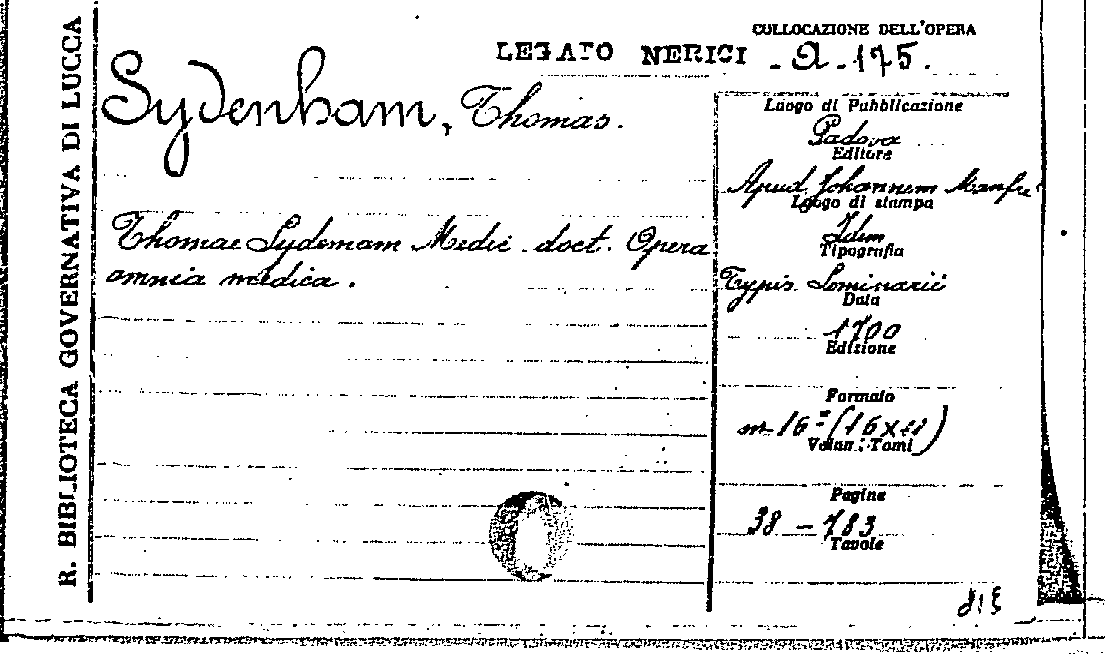 R. BIBLIOTECA GOVERNATIVA DI LUCCA
COLLOCAZIONE DELL'OPERA
LEGATO NERICI - Q - 175.
Sydenham, Thomas.
Thomae Sydemam Medic doct. Opera
omnia medica.
Luogo di Pubblicazione
Padova
Editore
Apud Johannem Manfre
Luogo di stampa
Idem
Tipografia
Typis Seminarii
Data
1700
Edizione
Formato
in-16= (16x11)
Volumi: Tomi
Pagine
38 - 783
Tavole